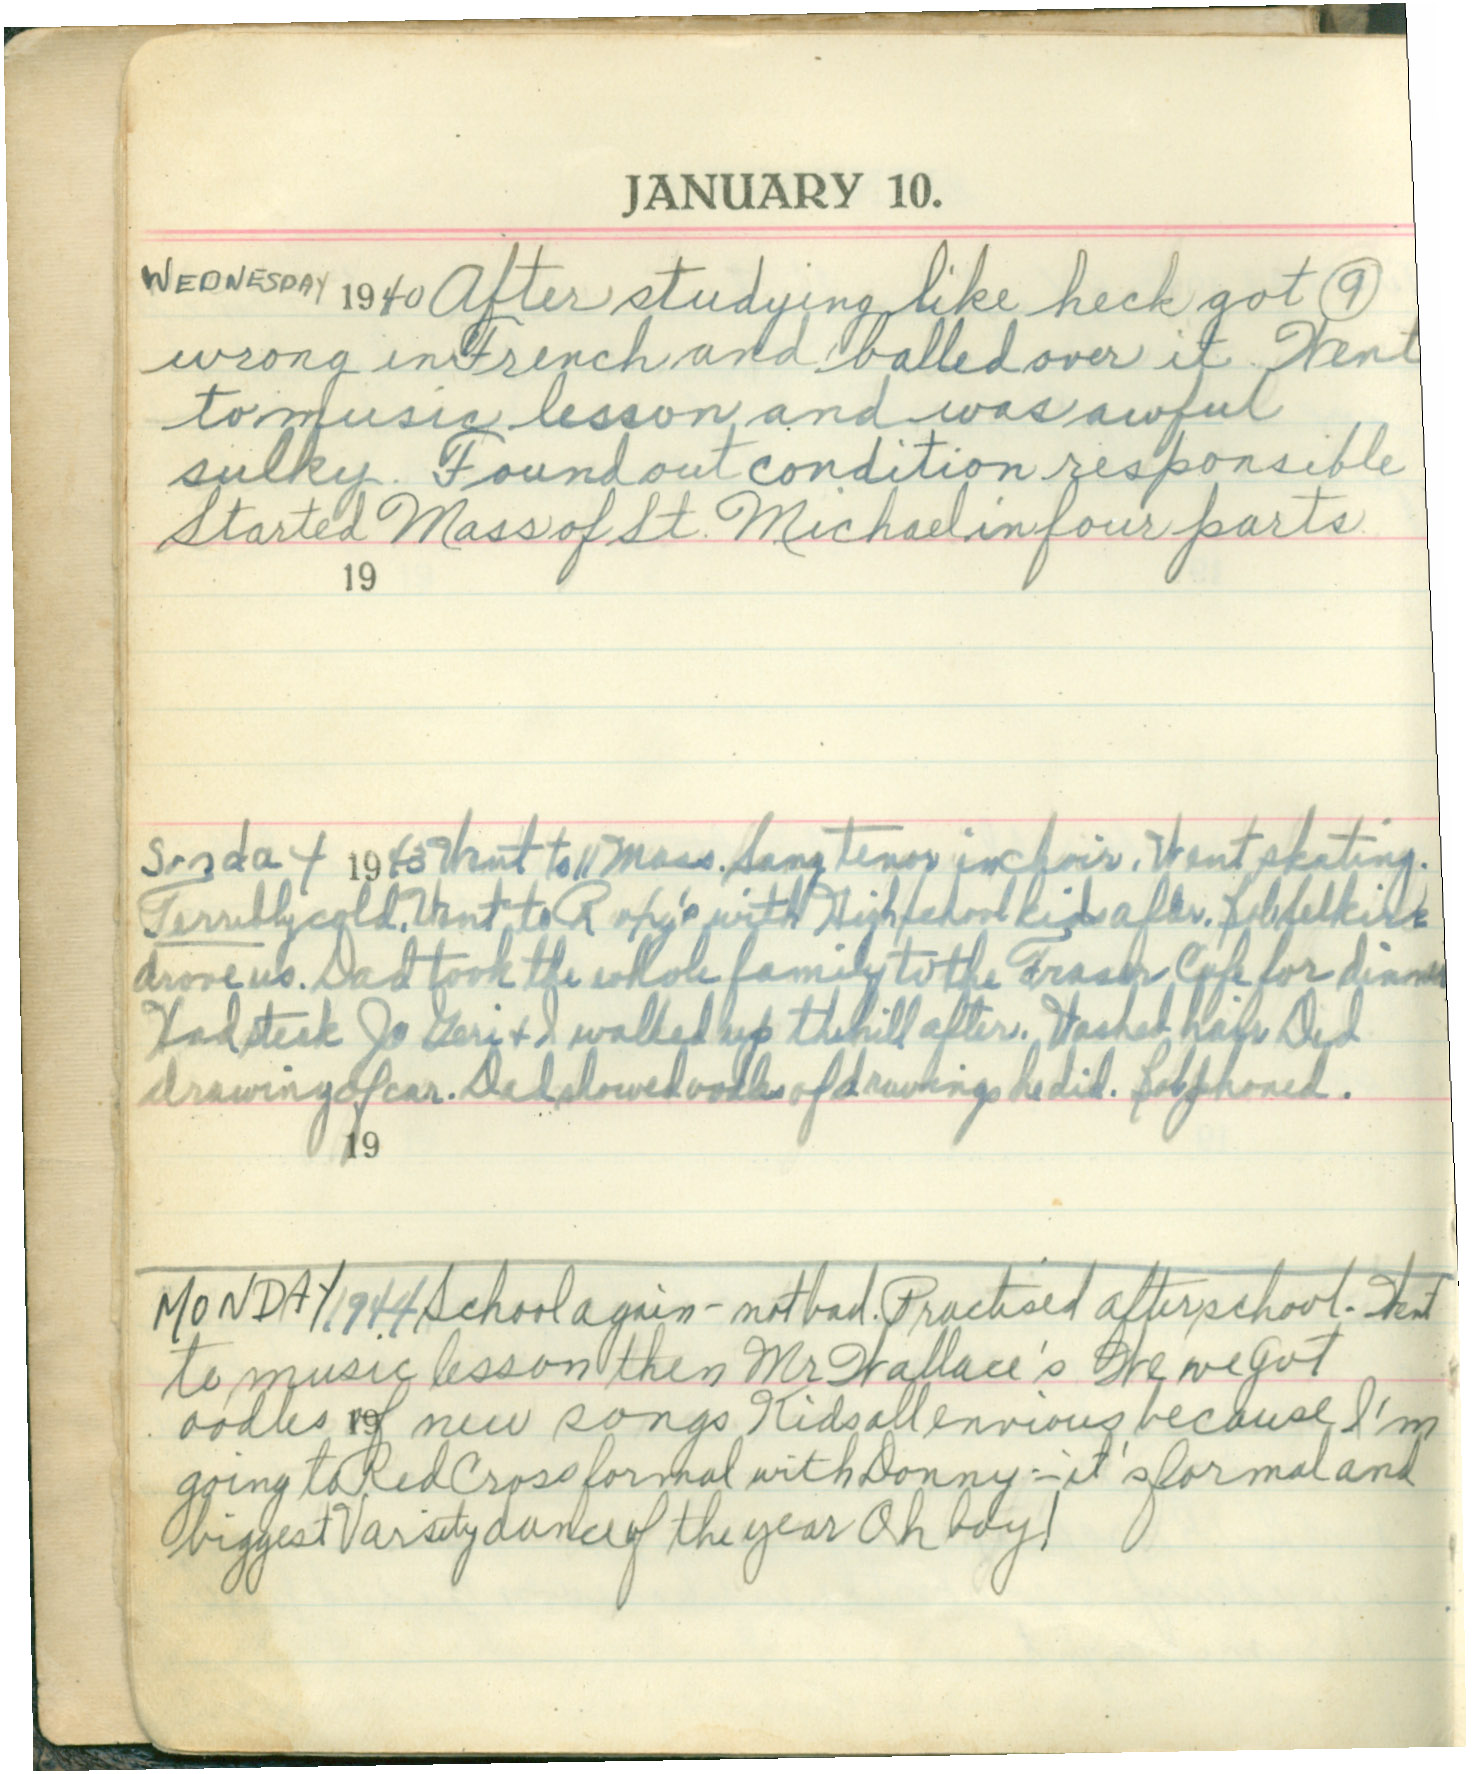 JANUARY 10.
WEDNESDAY 1940 After studying like heck got 9
wrong in French and balled over it. Went
to music lesson and was awful
sulky. Found out condition responsible
Started Mass of St. Michael in four parts
19
Sunday 1943 Went to 11 Mass. Sang tenor in choir. Went skating.
Terribly cold. Went to Roxy's with High school kids after. Bob Selkirk
drove us. Dad took the whole family to the Fraser Cafe for dinner
Had steak Jo Geri + I walked up the hill after. Washed hair Did
drawing of car. Dad showed oodles of drawings he did. Bob phoned.
19
MONDAY 1944 School again - not bad. Practised after school - Went
to music lesson then Mr Wallace's We we got
oodles of new songs Kids all envious because I'm
19
going to Red Cross formal with Donny :- it's formal and
biggest Varsity dance of the year Oh boy!